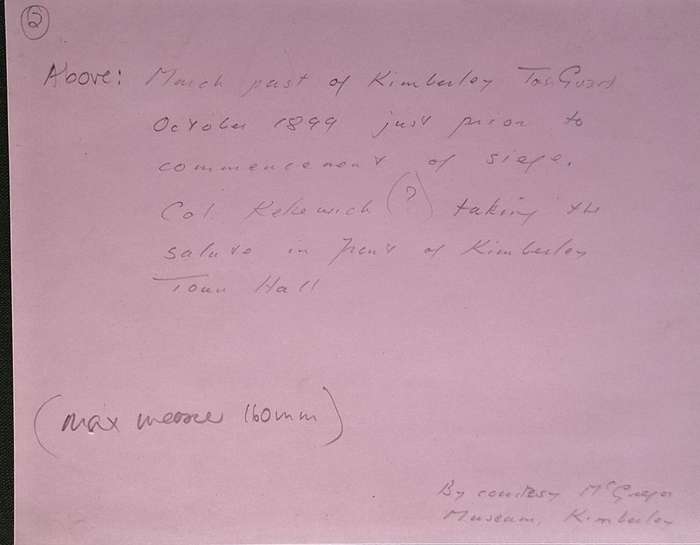 5
Above: March past of Kimberley Town Guard
October 1899 just prior to
commencement of siege.
Col. Kekewich (?) taking the
salute in front of Kimberley
Town Hall
(max measure 160mm)
By courtesy McGregor
Museum, Kimberley